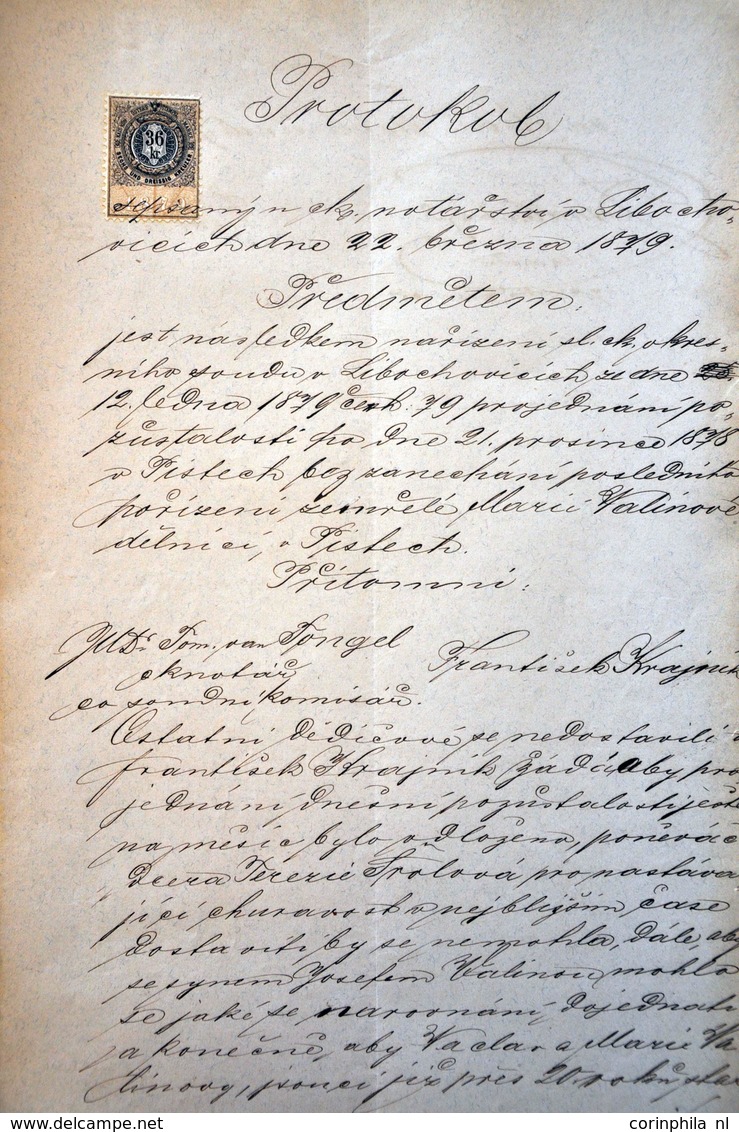 Protokol
36
kr.
sepsaný u ck. notářství v Libocho-
vicích dne 22. března 1879.
Předmětem
jest následkem nařízení sl. ck. okres-
ního soudu v Libochovicích ze dne
12. ledna 1879 čexh: 79 projednání po-
zůstalosti po dne 21. prosince 1878
v Pístech bez zanechání posledního
pořízení zemřelé Marii Valinové
dělnici, v Pístech.
Přítomni:
JUDr Tom. van Tongel
ck notář
co soudní komisář.
František Krajník
Ostatní dědicové se nedostavili
František Krajník žádá, aby pro
jednání dnešní pozůstalosti ješt
na měsíc bylo odloženo, poněvač
dcera Terezie Trolová pro nastáva
jící churavost v nejbližším čase
dostaviti by se nemohla, dále, aby
se synem Josefem Valinou mohlo
se jaké se narovnání dojednati
a konečně, aby Václav a Marie Va
linovy, jsouci již přes 20 roků star
corinphila nl